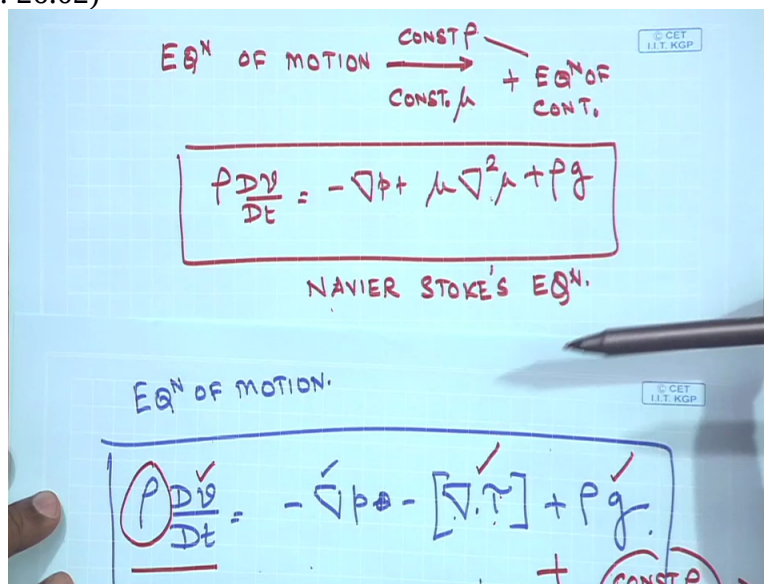 EQᴺ OF MOTION CONST ρ → CONST. μ + EQᴺ OF CONT.
© CET
I.I.T. KGP
ρ Dv/Dt = - ∇p + μ ∇²μ + ρg
NAVIER STOKE'S EQᴺ.
EQᴺ OF MOTION.
© CET
I.I.T. KGP
ρ Dv/Dt = - ∇p - [∇.τ] + ρg.
+ CONST ρ